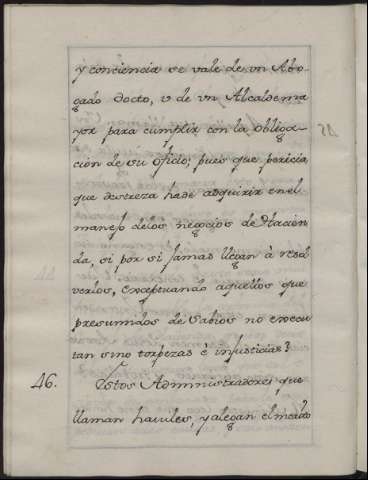 y conciencia se vale de vn Abo-
gado docto, v de vn Alcaldema
yor para cumplir con la obliga-
cion de su oficio; pues que pericia,
que destreza hade adquirir en el
manejo delos negocios de Hacien
da, si por si Jamas llegan à resol
verlos, exceptuando aquellos que
presumidos de Sabios no execu
tan sino torpezas è injusticias?
46. Estos Administradores que
llaman haviles, y alegan el merito